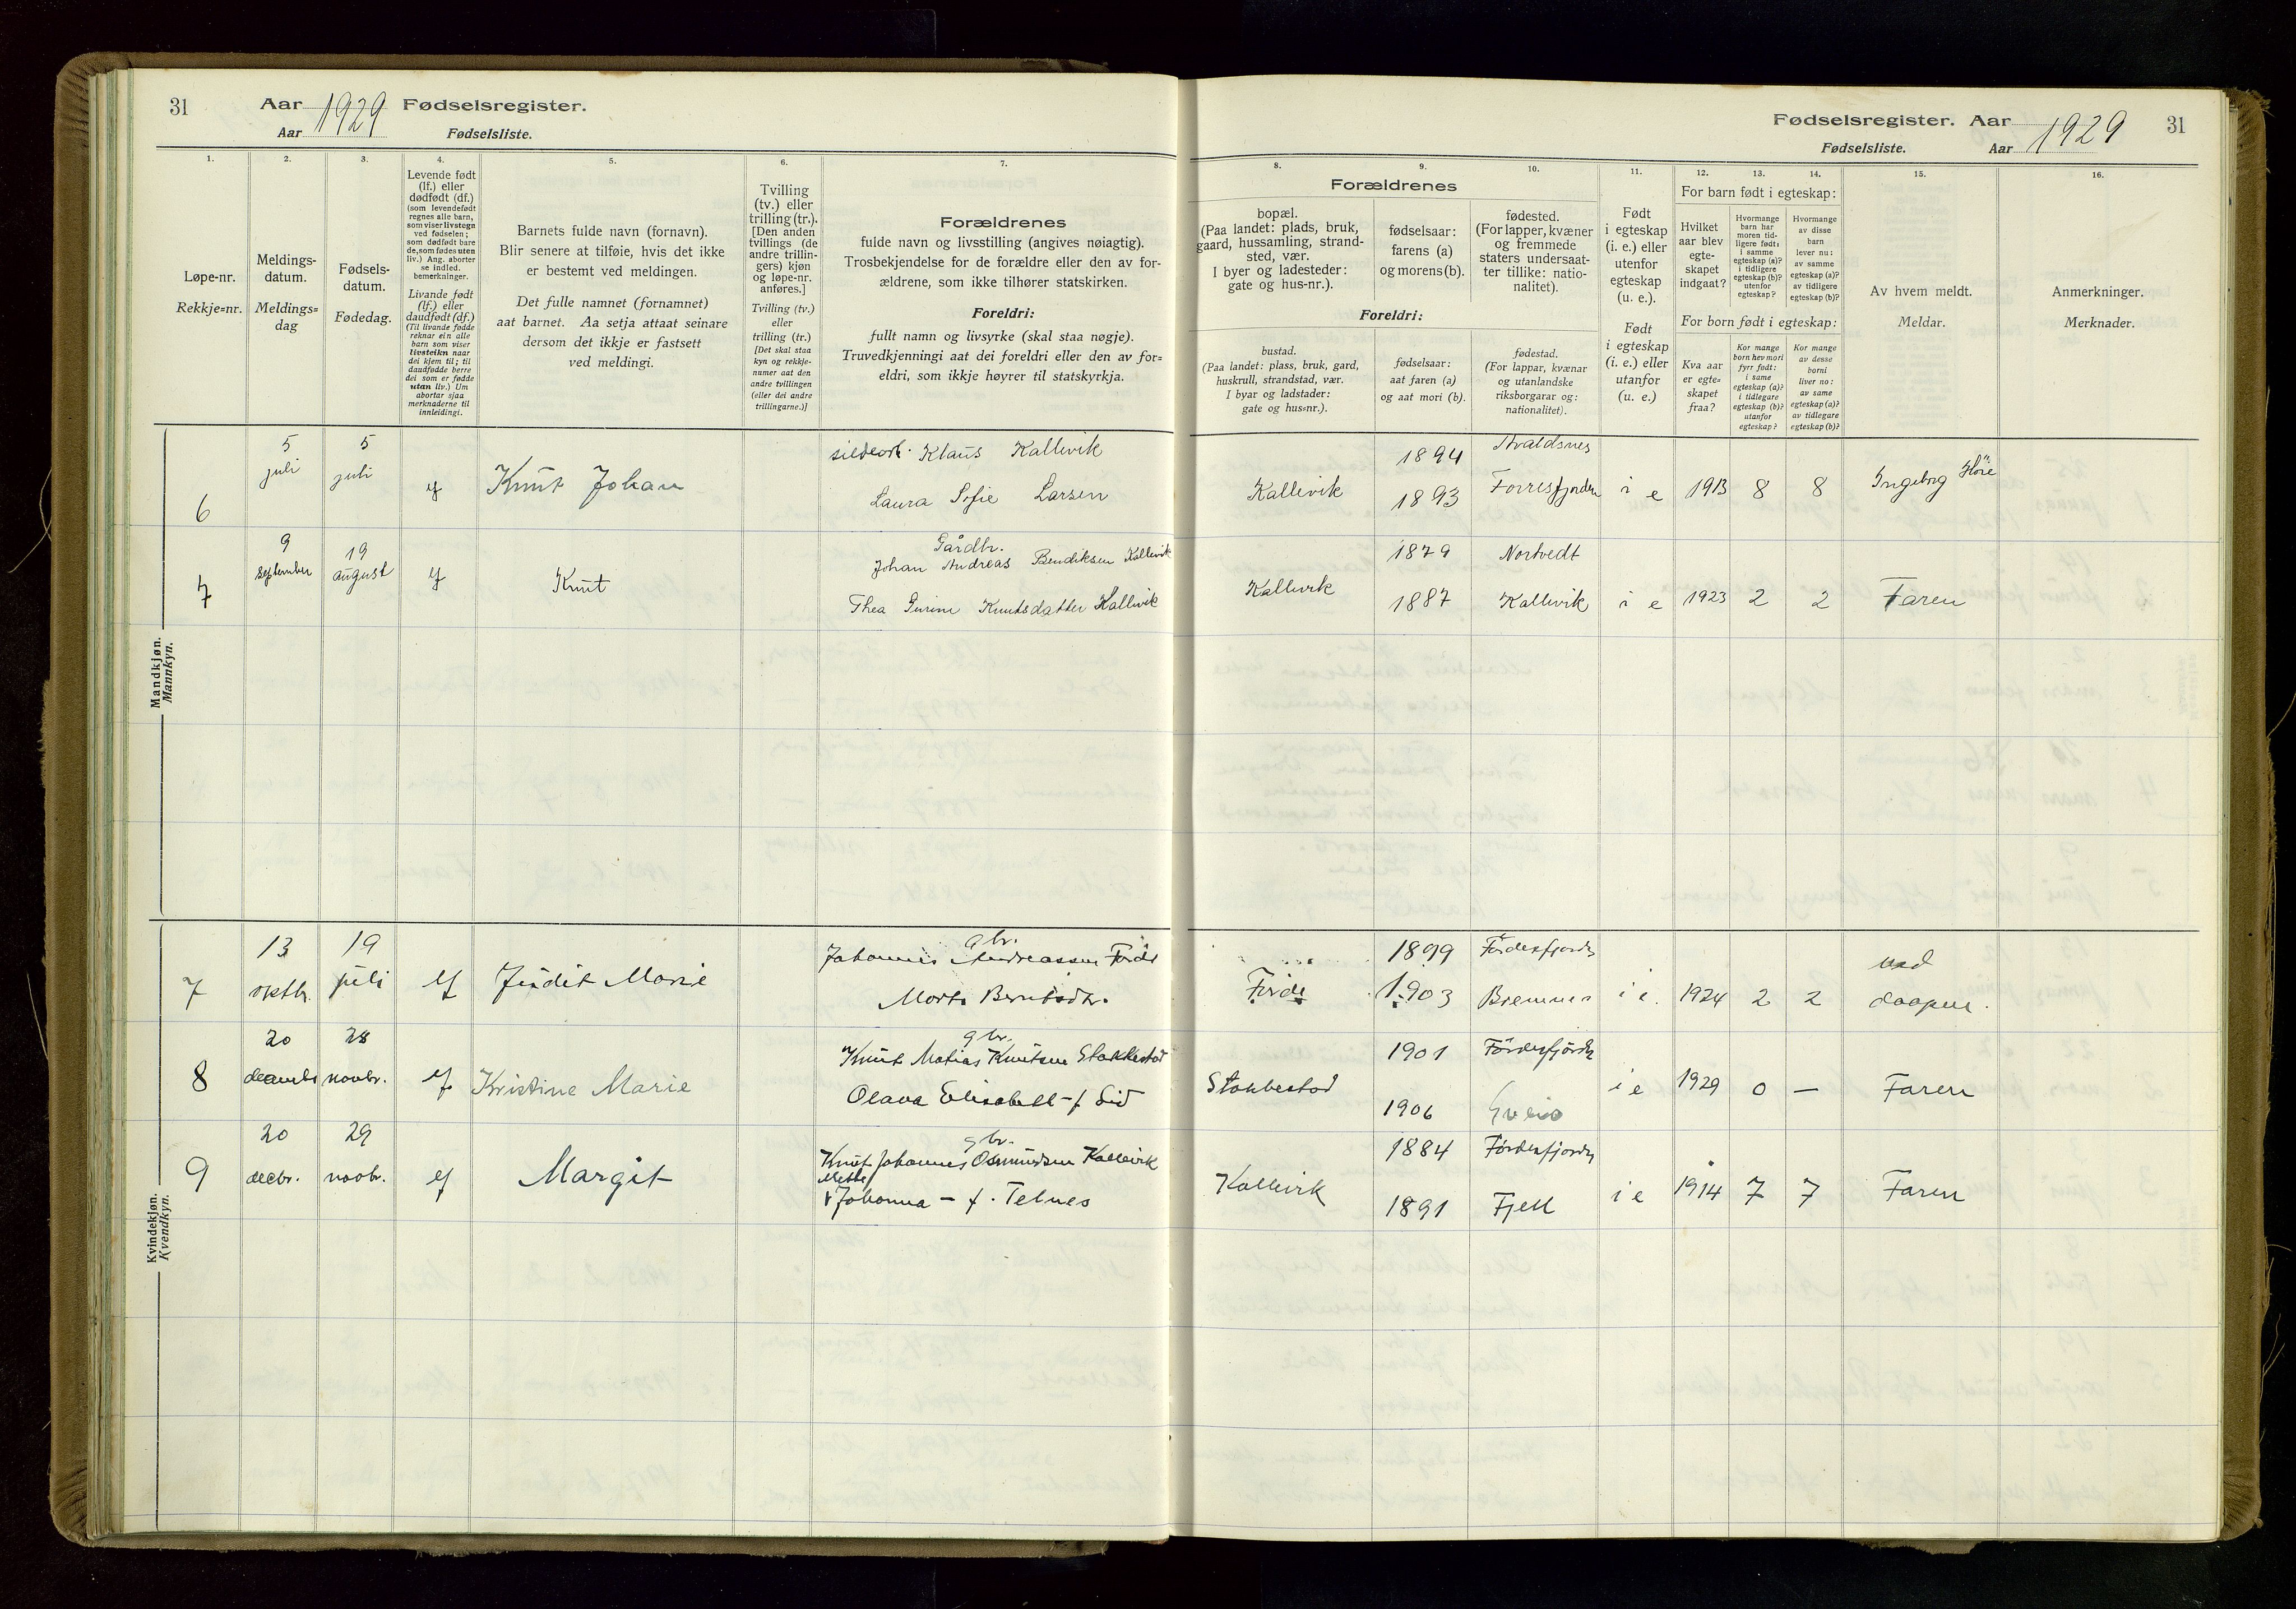 31
Aar 1929 Fødselsregister.
Aar Fødselsliste.
Fødselsregister. Aar 1929 31
Fødselsliste. Aar
1.
Løpe-nr.
Rekkje=nr.
2.
Meldings-
datum.
Meldings=
dag
3.
Fødsels-
datum.
Fødedag.
4.
Levende født
(lf.) eller
dødfødt (df.)
(som levendefødt
regnes alle barn,
som viser livstegn
ved fødselen;
som dødfødt bare
de, som fødes uten
liv.) Ang. aborter
se indled.
bemerkninger.
Livande født
(lf.) eller
daudfødt (df.)
(Til livande fødde
reknar ein alle
barn som viser
livsteikn naar
dei kjem til; til
daudfødde berre
dei som er fødde
utan liv.) Um
abortar sjaa
merknaderne til
innleidingi.
5.
Barnets fulde navn (fornavn).
Blir senere at tilføie, hvis det ikke
er bestemt ved meldingen.
Det fulle namnet (fornamnet)
aat barnet. Aa setja attaat seinare
dersom det ikkje er fastsett
ved meldingi.
6.
Tvilling
(tv.) eller
trilling (tr.).
[Den anden
tvillings (de
andre trillin-
gers) kjøn
og løpe-nr.
anføres.]
Tvilling (tv.)
eller
trilling (tr.)
[Det skal staa
kyn og rekkje-
numer aat den
andre tvillingen
(eller dei andre
trillingarne.)]
7.
Forældrenes
fulde navn og livsstilling (angives nøiagtig).
Trosbekjendelse for de forældre eller den av for-
ældrene, som ikke tilhører statskirken.
Foreldri:
fullt namn og livsyrke (skal staa nøgje).
Truvedkjenningi aat dei foreldri eller den av for=
eldri, som ikkje høyrer til statskyrkja.
8. 9. 10.
Forældrenes
bopæl.
(Paa landet: plads, bruk,
gaard, hussamling, strand-
sted, vær.
I byer og ladesteder:
gate og hus-nr.).
fødselsaar:
farens (a)
og morens (b).
fødested.
(For lapper, kvæner
og fremmede
staters undersaat-
ter tillike: natio-
nalitet).
Foreldri:
bustad.
(Paa landet: plass, bruk, gard,
huskrull, strandstad, vær.
I byar og ladstader:
gate og hus=nr.).
fødselsaar:
aat faren (a)
og aat mori (b).
fødestad.
(For lappar, kvænar
og utanlandske
riksborgarar og:
nationalitet).
11.
Født
i egteskap
(i. e.) eller
utenfor
egteskap
(u. e.).
Født
i egteskap
(i. e.) eller
utanfor
(u. e.)
12. 13. 14.
For barn født i egteskap:
Hvilket
aar blev
egte-
skapet
indgaat?
Hvormange
barn har
moren tid-
ligere født:
i samme
egteskap (a)?
i tidligere
egteskap (b)?
utenfor
egteskap?
Hvormange
av disse
barn
lever nu:
av samme
egteskap (a)?
av tidligere
egteskap (b)?
For born født i egteskap:
Kva aar
er egte=
skapet
fraa?
Kor mange
born hev mori
fyrr født:
i same
egteskap (a)?
i tidlegare
egteskap (b)?
utanfor
egteskap?
Kor mange
av desse
borni
liver no:
av same
egteskap (a)?
av tidlegare
egteskap (b)?
15.
Av hvem meldt.
Meldar.
16.
Anmerkninger.
Merknader.
Mandkjøn.
Mannkyn.
6 5 juli 5 juli Knut Johan Klaus Kallevik 1894 Avaldsnes
Laura Sofie Larsen Kallevik 1893 Førresfjorden i e 1913 8 8 Ingeborg
7 9 september 19 august Knut Gårdbr.
Johan Andreas Bendiksen Kallevik 1879 Nortvedt
Thea Gurine Knutsdatter Kallevik Kallevik 1887 Kallevik i e 1923 2 2 Faren
Kvindekjøn.
Kvendkyn.
7 13 oktbr. 19 juli lf Judit Marie gbr.
Johannes Andreassen Førde 1899 Førdesfjorden
Førde 1903 Bremnes i e. 1924 2 2 ved daapen.
8 20 28 novbr. lf Kristine Marie gbr.
Knut Matias Knutsen Stakkestad 1901 Førdesfjorden
Olava Elisabeth - f Lid Stakkestad 1906 Sveio i e 1929 0 — Faren
9 20 decbr. 29 novbr. lf Margit gbr.
Knut Johannes Osmundsen Kallevik 1884 Førdesfjorden
Mette
Johanna — f. Telnes Kallevik 1891 Fjell i e 1914 7 7 Faren